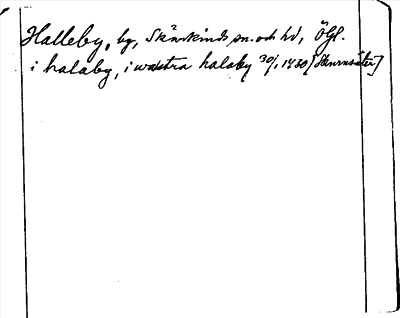 Halleby, by, Skärkinds sn. och hd, Ögl.
i halaby, i wastra halaby 30/1 1430 [Skurusäter]